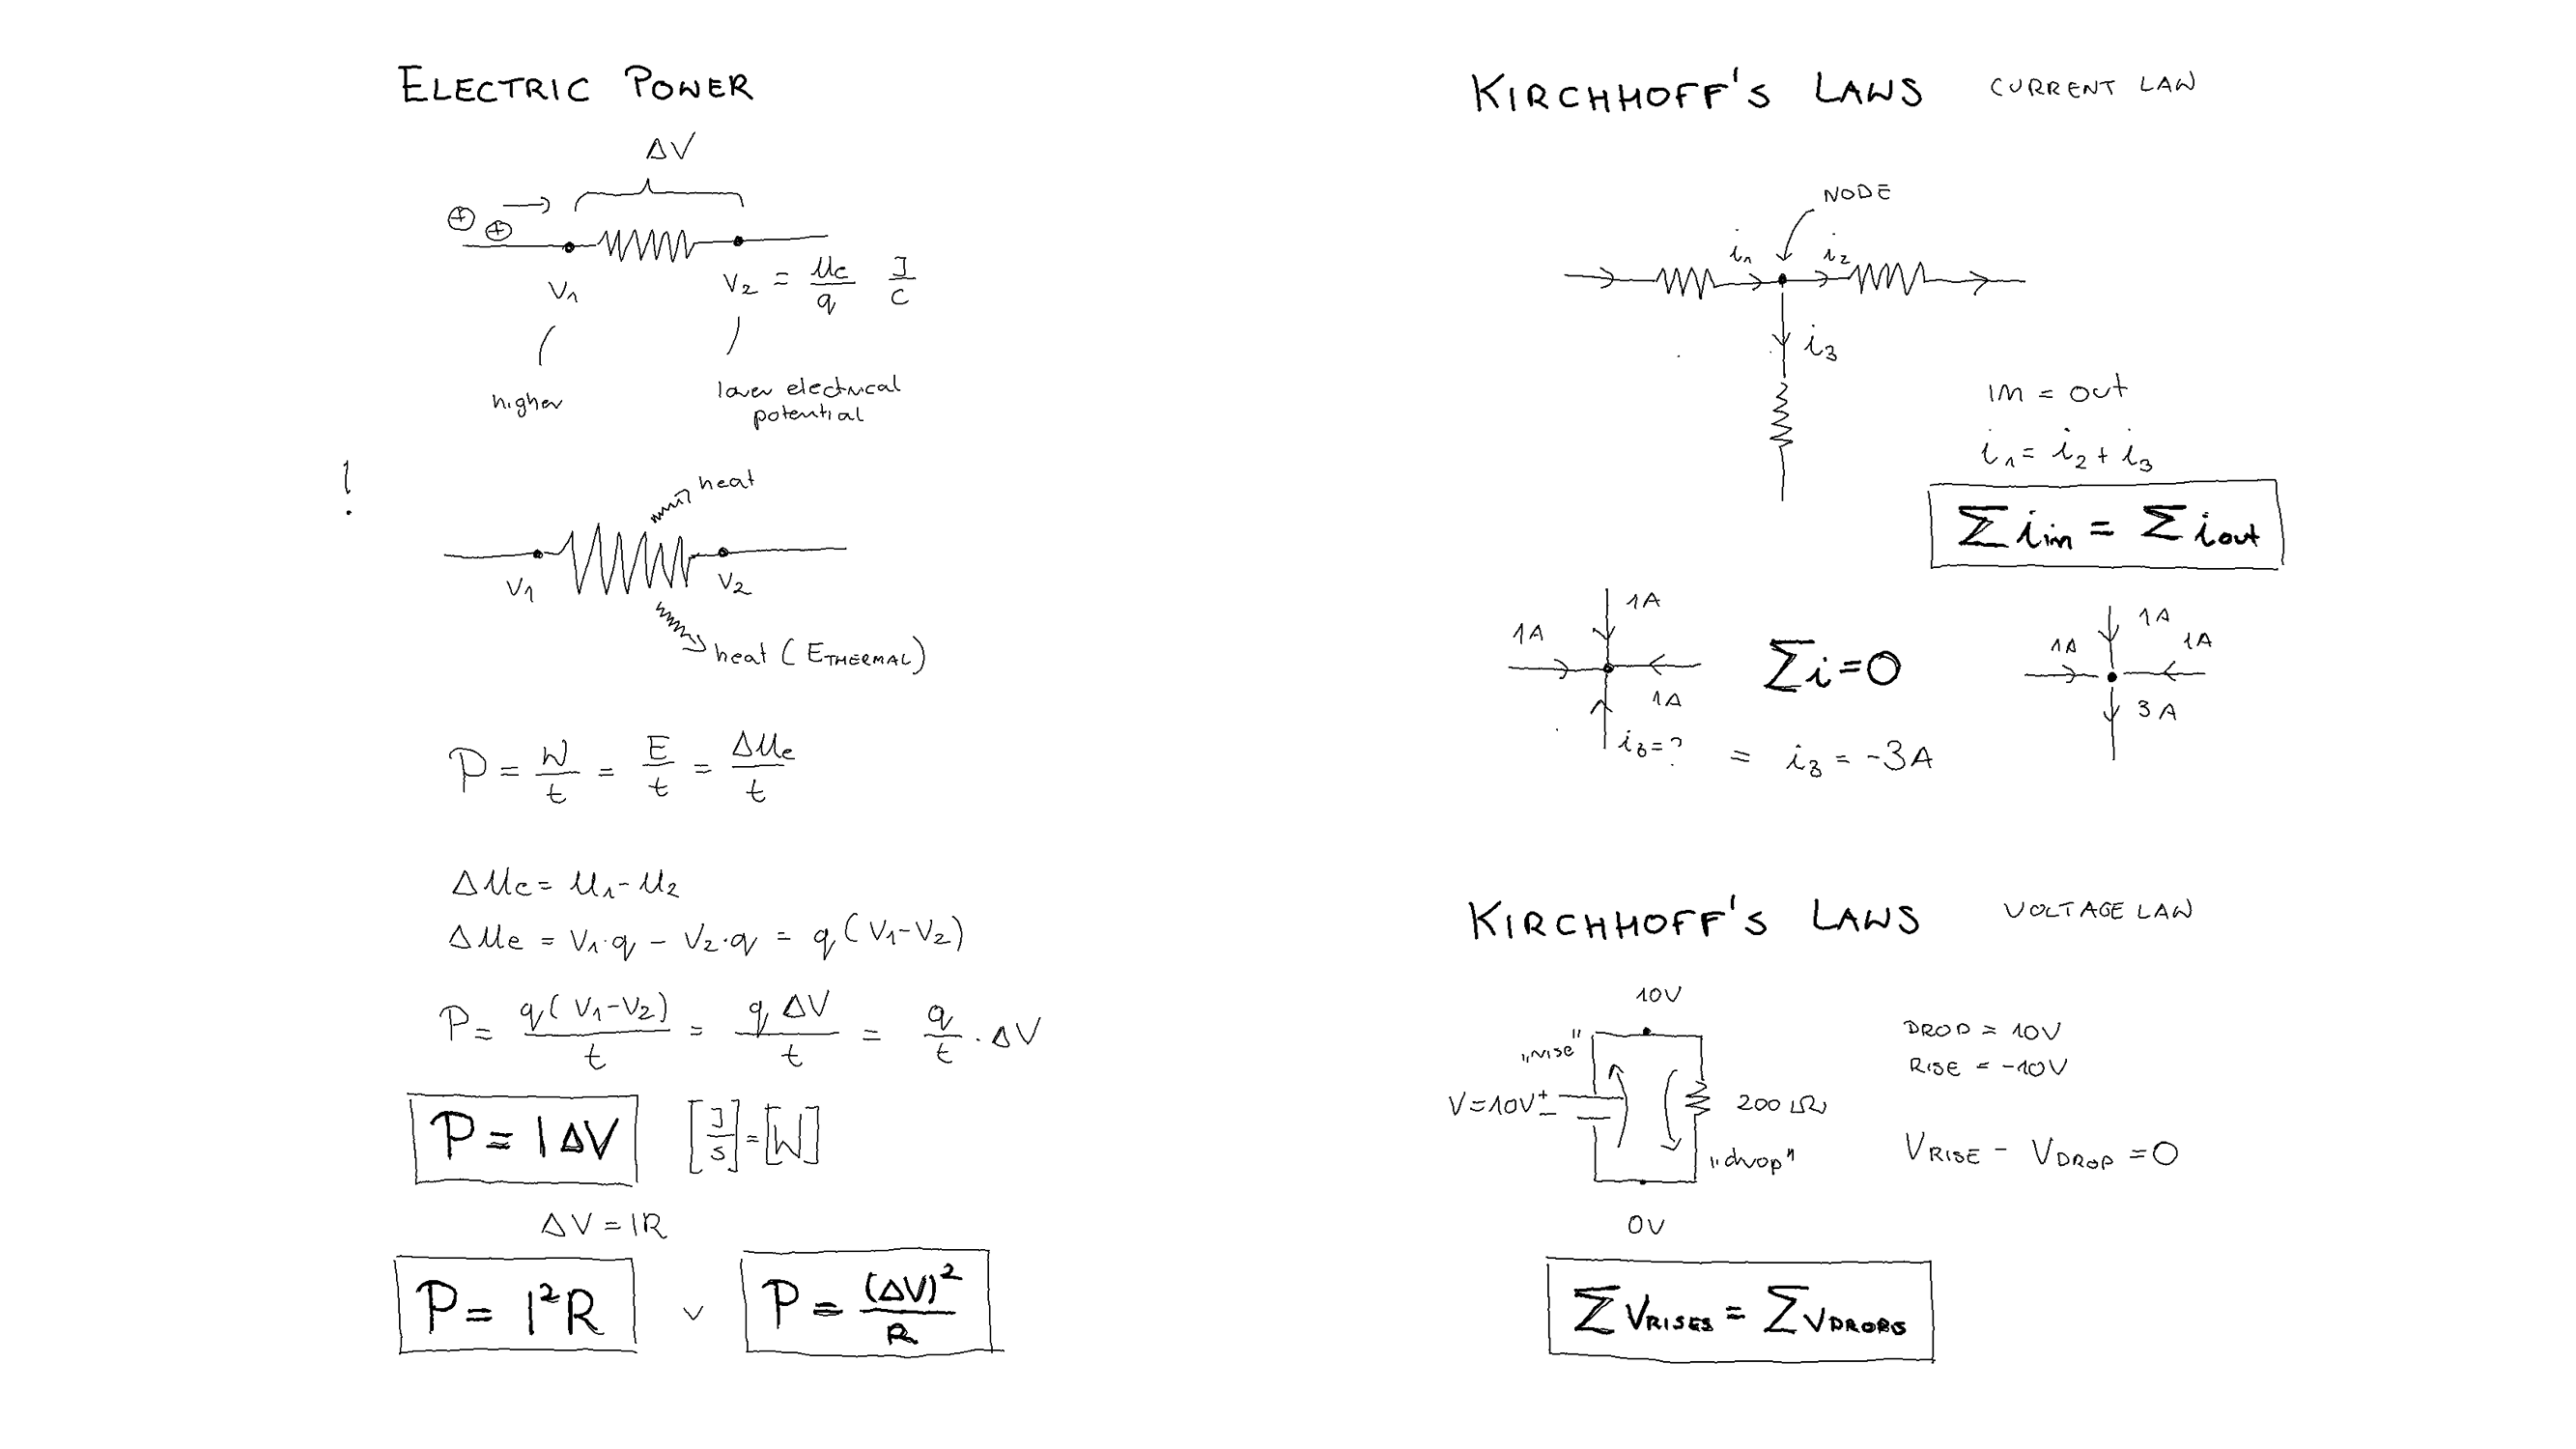 ELECTRIC POWER
ΔV
⊕ ⊕
V1
V2 = Ue/q J/C
higher
lower electrical
potential
!
heat
V1
V2
heat (ETHERMAL)
P = W/t = E/t = ΔUe/t
ΔUe = U1 - U2
ΔUe = V1·q - V2·q = q(V1-V2)
P = q(V1-V2)/t = qΔV/t = q/t · ΔV
P = IΔV [J/s] = [W]
ΔV = IR
P = I²R v P = (ΔV)²/R
KIRCHHOFF'S LAWS CURRENT LAW
NODE
i1 i2
i3
in = out
i1 = i2 + i3
Σ iin = Σ iout
1A
1A
1A
i3 = ?
Σi=0
= i3 = -3A
1A
1A
1A
3A
KIRCHHOFF'S LAWS VOLTAGE LAW
10V
„rise"
V=10V + -
200 Ω
„drop"
0V
DROP = 10V
RISE = -10V
VRISE - VDROP = 0
Σ VRISES = Σ VDROPS